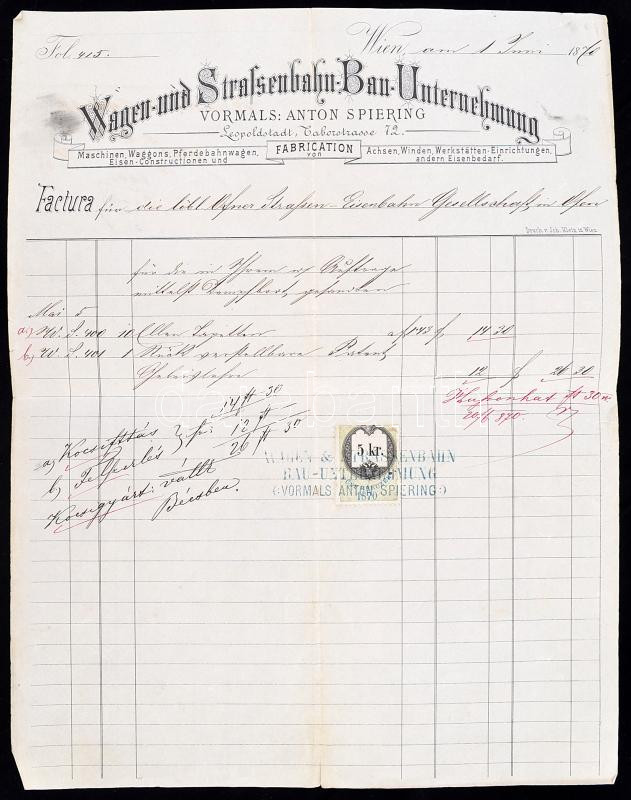 Fol. 415.
Wien, am 1 Juni 1870
Wagen- und Strassenbahn-Bau-Unternehmung
VORMALS: ANTON SPIERING
Leopoldstadt, Taborstrasse 72.
Maschinen, Waggons, Pferdebahnwagen, Eisen-Constructionen und
FABRICATION
von
Achsen, Winden, Werkstätten-Einrichtungen, andern Eisenbedarf.
Factura für die löbl. Ofner Straßen-Eisenbahn Gesellschaft, in Ofen
Druck v. Joh. Klein in Wien
für die in Ihrem Auftrage
mittelst Dampfboot, gesandten
Mai 5
a) W. S. 400 10 Ellen Tapetten a f 1.43 f. 14 30
b) W. S. 401 1 Stück verstellbare Patent
12 f 26 30
a) Kocsifttás 14 ft 30
b) Felszerlés 12 ft
26 ft 30
Kocsigyárt: vállt
Bécsben.
ft 30
870.
5 kr.
1870
WAGEN & STRASSENBAHN
BAU-UNTERNEHMUNG
(VORMALS ANTON SPIERING)